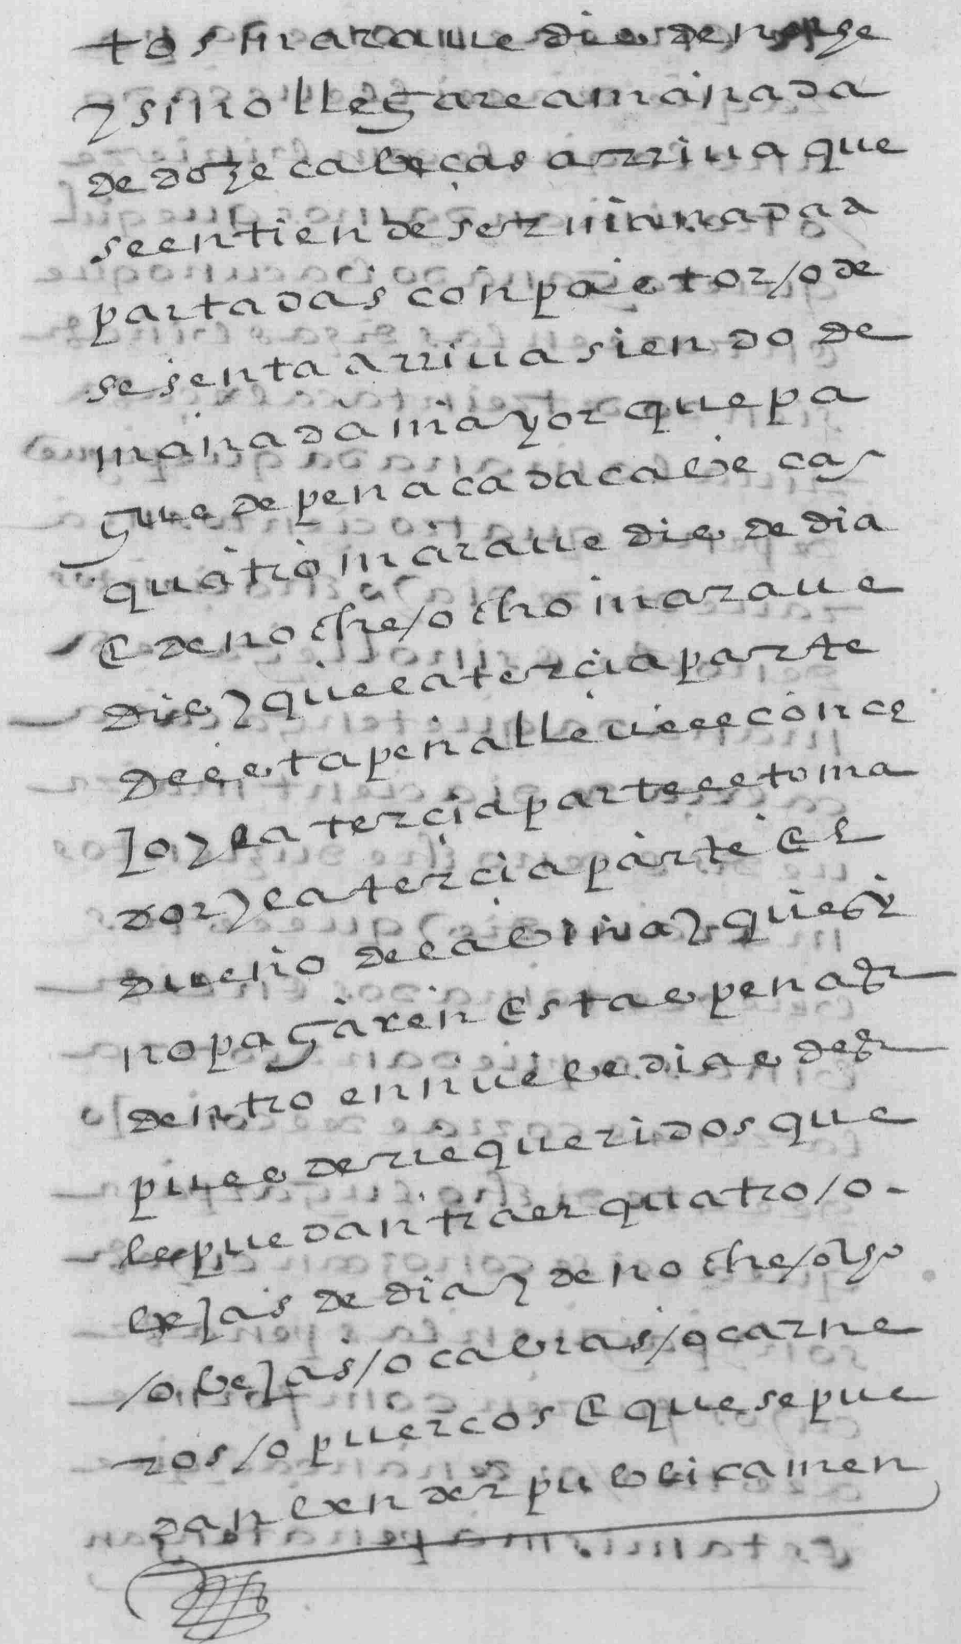 tos maravedis de noche
y si no llegare a manada
de doze cabeças arriua que
se entiende ser manada a
partadas con pastor / o de
sesenta arriua siendo de
manada mayor que pa
gue de pena cada cabeças
quatro maraue dis de dia
E de noche / ocho maraue
dis y que la tercia parte
desta pena lleve el conce
jo y la tercia parte el toma
dor y la tercia parte El
dueño de la viña y que si
no pagaren Estas penas
dentro en nueve dias des
pues de requeridos que
les puedan traer quatro / o
bejas de dia y de noche / ocho
/ o bejas / o cabras / o carne
ros / o puercos E que se pue
dan bender publicamen